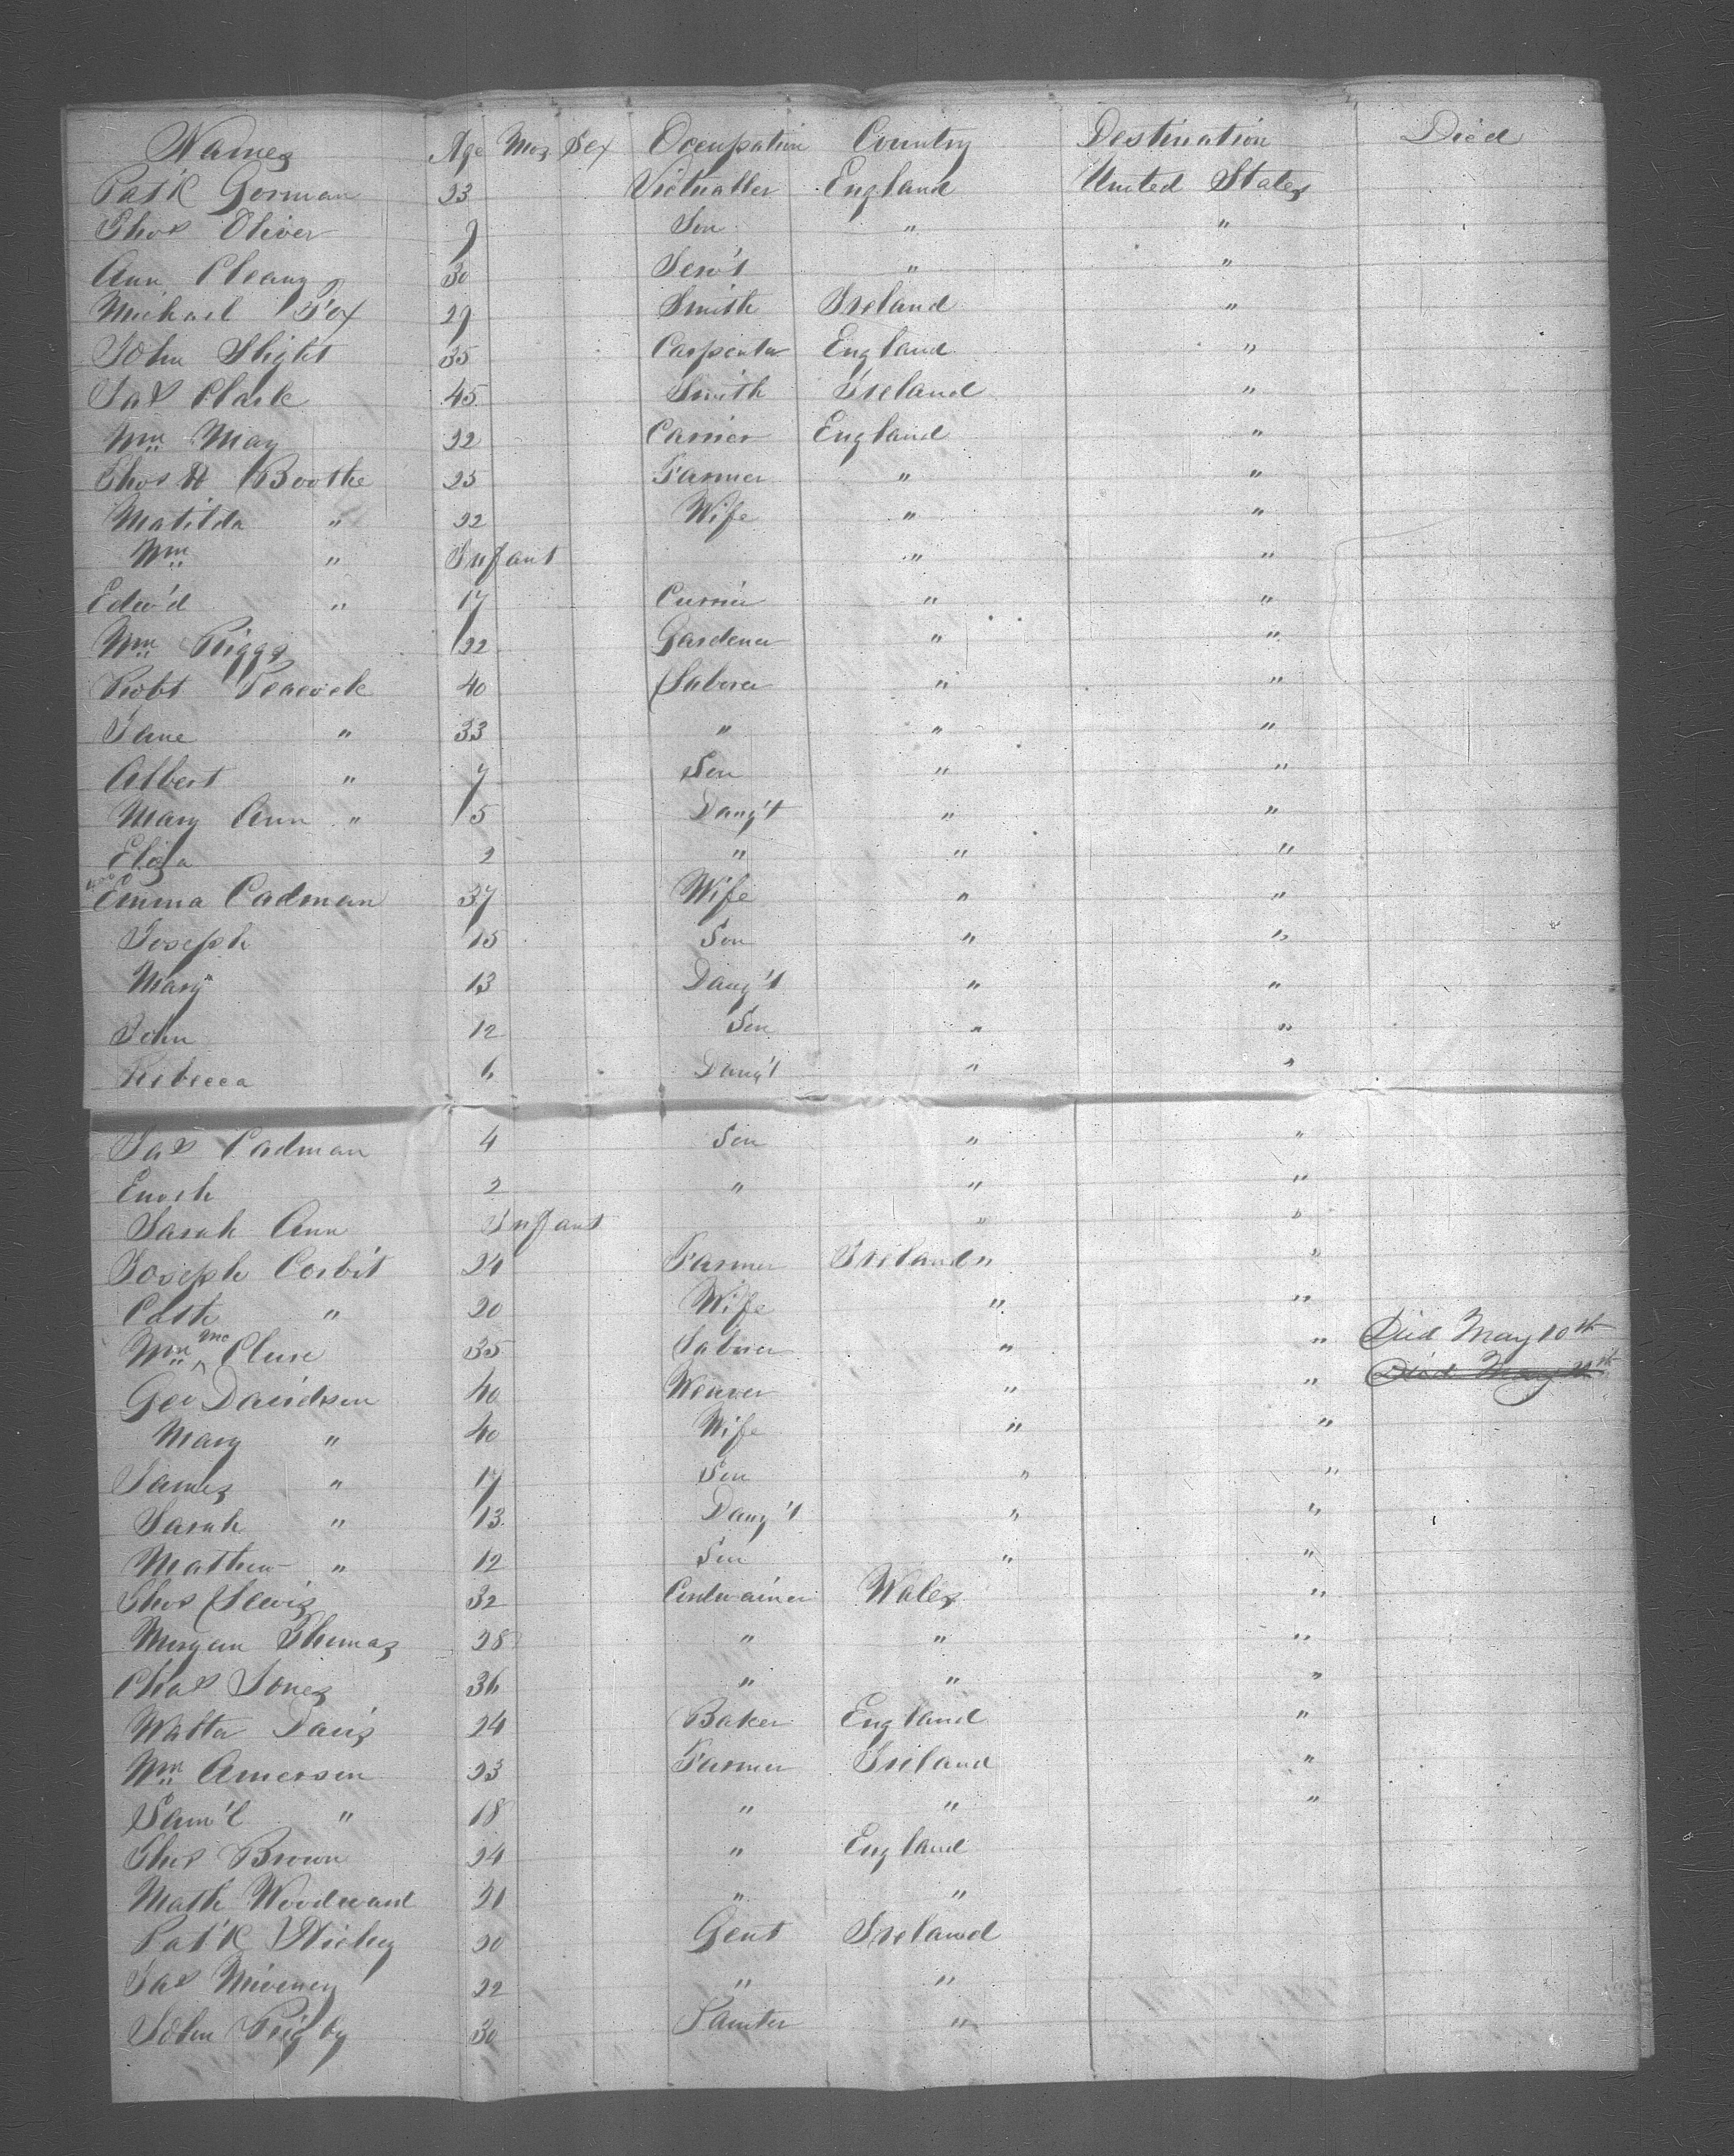 Names Age Mos Sex Occupation Country Destination Died
Pat'k Gorman 23 Victualler England United States
Thos Oliver 9 Son " "
Ann 30 Serv't " "
Michael Fox 29 Smith Ireland "
John Slight 35 Carpenter England "
Jas Clark 45 Smith Ireland "
Wm May 22 Carrier England "
Thos H Boothe 25 Farmer " "
Matilda " 22 Wife " "
Wm " Infant " "
Edw'd " 17 Currier " "
Wm Riggs 22 Gardener " "
Robt Peacock 40 Laborer " "
Jane " 33 " " "
Albert " 7 Son " "
Mary Ann " 5 Daug't " "
Eliza 2 " " "
400
Emma Cadman 37 Wife " "
Joseph 15 Son " "
Mary 13 Daug't " "
John 12 Son " "
Rebecca 6 Daug't " "
Jas Cadman 4 Son " "
Enoch 2 " " "
Sarah Ann Infant " "
Joseph Corbit 24 Farmer Ireland " "
Cath " 20 Wife " "
Wm Mc Clure 35 Laborer " " Died May 10th
Geo Davidson 40 Weaver " " Died May
Mary " 40 Wife " "
James " 17 Son " "
Sarah " 13 Daug't " "
Mathew " 12 Son " "
Thos Lewis 32 Cordwainer Wales "
Morgan Thomas 28 " " "
Chas Jones 36 " " "
Walter Davis 24 Baker England "
Wm Amerson 23 Farmer Ireland "
Sam'l " 18 " " "
Thos Brown 24 " England
Math Woodward 21 " "
Pat'k 20 Gent Ireland
Jas 22 " "
John Rigby 30 Painter "